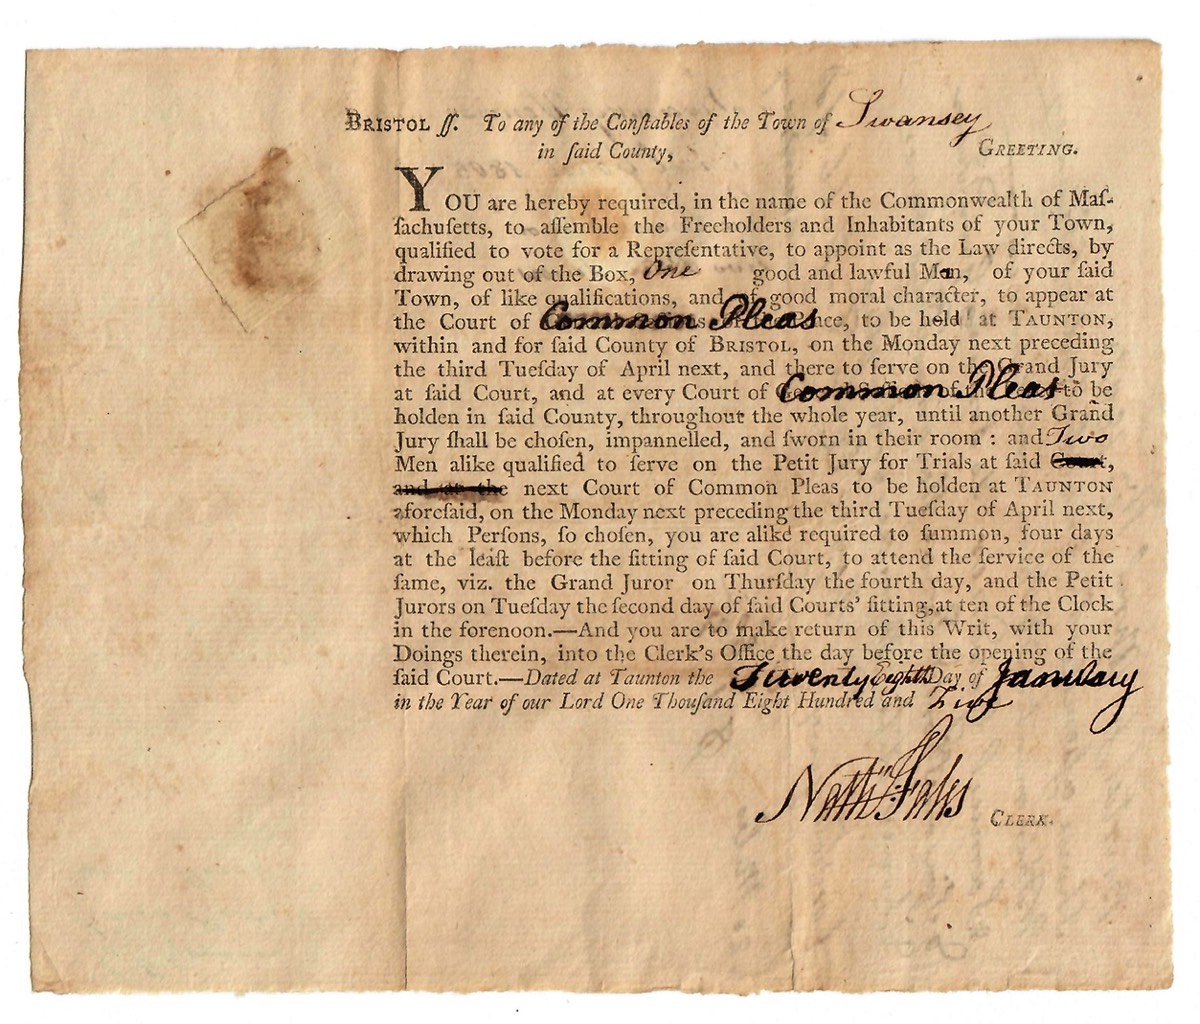 BRISTOL ſſ. To any of the Conſtables of the Town of Swansey
in ſaid County, GREETING.
YOU are hereby required, in the name of the Commonwealth of Maſ-
ſachuſetts, to aſſemble the Freeholders and Inhabitants of your Town,
qualified to vote for a Repreſentative, to appoint as the Law directs, by
drawing out of the Box, One good and lawful Man, of your ſaid
Town, of like qualifications, and of good moral character, to appear at
the Court of Common Pleas, to be held at TAUNTON,
within and for ſaid County of BRISTOL, on the Monday next preceding
the third Tueſday of April next, and there to ſerve on the Grand Jury
at ſaid Court, and at every Court of Common Pleas to be
holden in ſaid County, throughout the whole year, until another Grand
Jury ſhall be choſen, impannelled, and ſworn in their room : and Two
Men alike qualified to ſerve on the Petit Jury for Trials at ſaid Court,
and at the next Court of Common Pleas to be holden at TAUNTON
aforeſaid, on the Monday next preceding the third Tueſday of April next,
which Perſons, ſo choſen, you are alike required to ſummon, four days
at the leaſt before the ſitting of ſaid Court, to attend the ſervice of the
ſame, viz. the Grand Juror on Thurſday the fourth day, and the Petit
Jurors on Tueſday the ſecond day of ſaid Courts' ſitting, at ten of the Clock
in the forenoon.—And you are to make return of this Writ, with your
Doings therein, into the Clerk's Office the day before the opening of the
ſaid Court.—Dated at Taunton the Twenty Eighth Day of January
in the Year of our Lord One Thouſand Eight Hundred and Five
Nathl Fales CLERK.